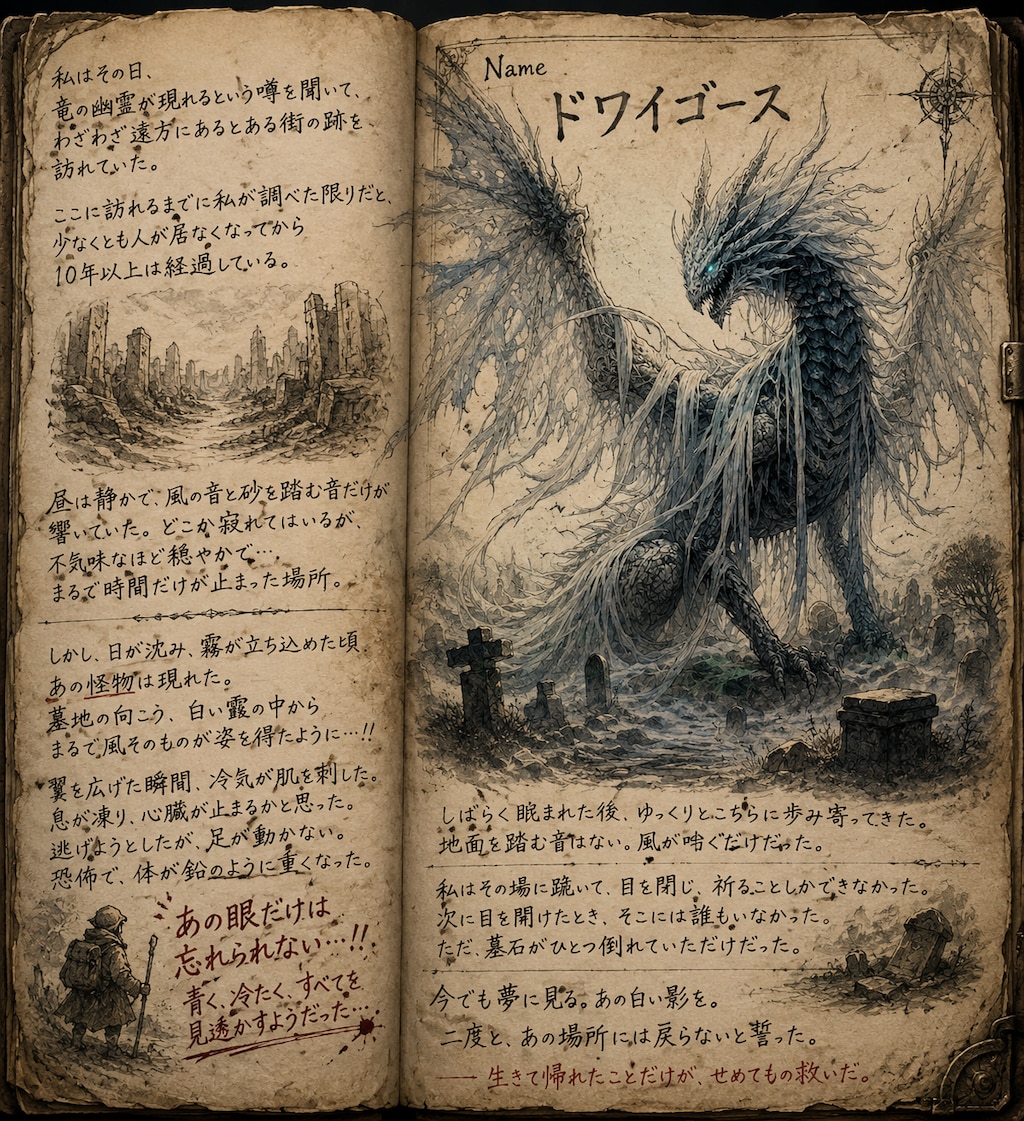 私はその日、
竜の幽霊が現れるという噂を聞いて、
わざわざ遠方にあるとある街の跡を
訪れていた。
ここに訪れるまでに私が調べた限りだと、
少なくとも人が居なくなってから
10年以上は経過している。
昼は静かで、風の音と砂を踏む音だけが
響いていた。どこか寂れてはいるが、
不気味なほど穏やかで…
まるで時間だけが止まった場所。
しかし、日が沈み、霧が立ち込めた頃
あの怪物は現れた。
墓地の向こう、白い霞の中から
まるで風そのものが姿を得たように…!!
翼を広げた瞬間、冷気が肌を刺した。
息が凍り、心臓が止まるかと思った。
逃げようとしたが、足が動かない。
恐怖で、体が鉛のように重くなった。
あの眼だけは
忘れられない…!!
青く、冷たく、すべてを
見透かすようだった…
Name
ドワイゴース
しばらく睨まれた後、ゆっくりとこちらに歩み寄ってきた。
地面を踏む音はない。風が啼ぐだけだった。
私はその場に跪いて、目を閉じ、祈ることしかできなかった。
次に目を開けたとき、そこには誰もいなかった。
ただ、墓石がひとつ倒れていただけだった。
今でも夢に見る。あの白い影を。
二度と、あの場所には戻らないと誓った。
── 生きて帰れたことだけが、せめてもの救いだ。